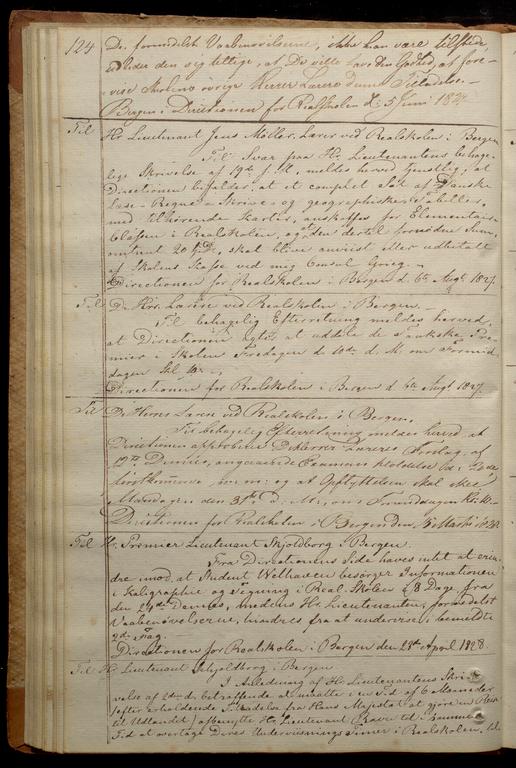 124
De formedelst Vaabenøvelserne, ikke kan være tilstede,
Bergen i Directionen for Realskolen d. 5 Juni 1827.
Til Hr. Lieutenant Jens Møller, Lærer ved Realskolen i Bergen
Til Svar paa Hr. Lieutenantens behage-
lige Skrivelse af 19de f. M., meldes herved
Directionen bifalder, at et complet Sæt af Danske
Læse- Regne- Skrive- og geographiske Tabeller,
med tilhørende Karter, anskaffes for Elementair
Classen i Realskolen, og at den dertil fornødne Sum,
omtrent 20 skal blive anviist eller udbetalt
af Skolens Kasse ved mig Consul Grieg.
Directionen for Realskolen i Bergen d. 6te Augt. 1827.
Til D'Hrr. Lærere ved Realskolen i Bergen.
Til behagelig Efterretning meldes herved,
at Directionen agter at uddele de Fankske Præ-
mier i Skolen Fredagen d. 10de d. M. om Formid-
dagen Kl. 10.
Directionen for Realskolen i Bergen d. 6te Augt. 1827.
Til De Herrer Lærere ved Realskolen i Bergen.
Til behagelig Efterretning meldes herved, at
Directionen approberer De Herrer Læreres Forslag af
12te Dennes, angaaende Examens Afholdelse
og at Opflyttelsen skal skee
Mandagen den 31te d. M., om Formiddagen
Directionen for Realskolen i Bergen Den Marts 1828.
Til Hr. Premier Lieutenant Skjoldborg i Bergen.
Fra Directionens Side haves intet at erin-
dre imod, at Student Welhaven besørger Informationen
i Kaligraphie og Tegning i Real-Skolen i 8 Dage fra
den 24de Dennes, medens Hr. Lieutenanten, formedelst
Vaabenøvelserne, hindres fra at undervise i bemeldte
2de Fag.
Directionen for Realskolen i Bergen den 28de April 1828.
Til Hr. Lieutenant Skjoldborg i Bergen
I Anledning af Hr. Lieutenantens Skri-
velse af betræffende at maatte i en Tid af 6 Maaneder
(efter erholdende Tilladelse fra Hans Majestæt at gjøre en Reise
til Udlandet) afbenytte Hr. Lieutenant Krawe til i samme
Tid at overtage Deres Underviisnings Timer i Realskolen,